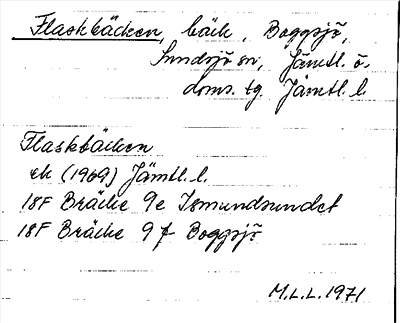 Flaskbäcken, bäck, Boggsjö,
Sundsjö sn, Jämtl. ö.
doms. tg. Jämtl. l.
Flaskbäcken
ek (1969) Jämtl. l.
18F Bräcke 9e Ismundsundet
18F Bräcke 9f Boggsjö
M.L.L. 1971